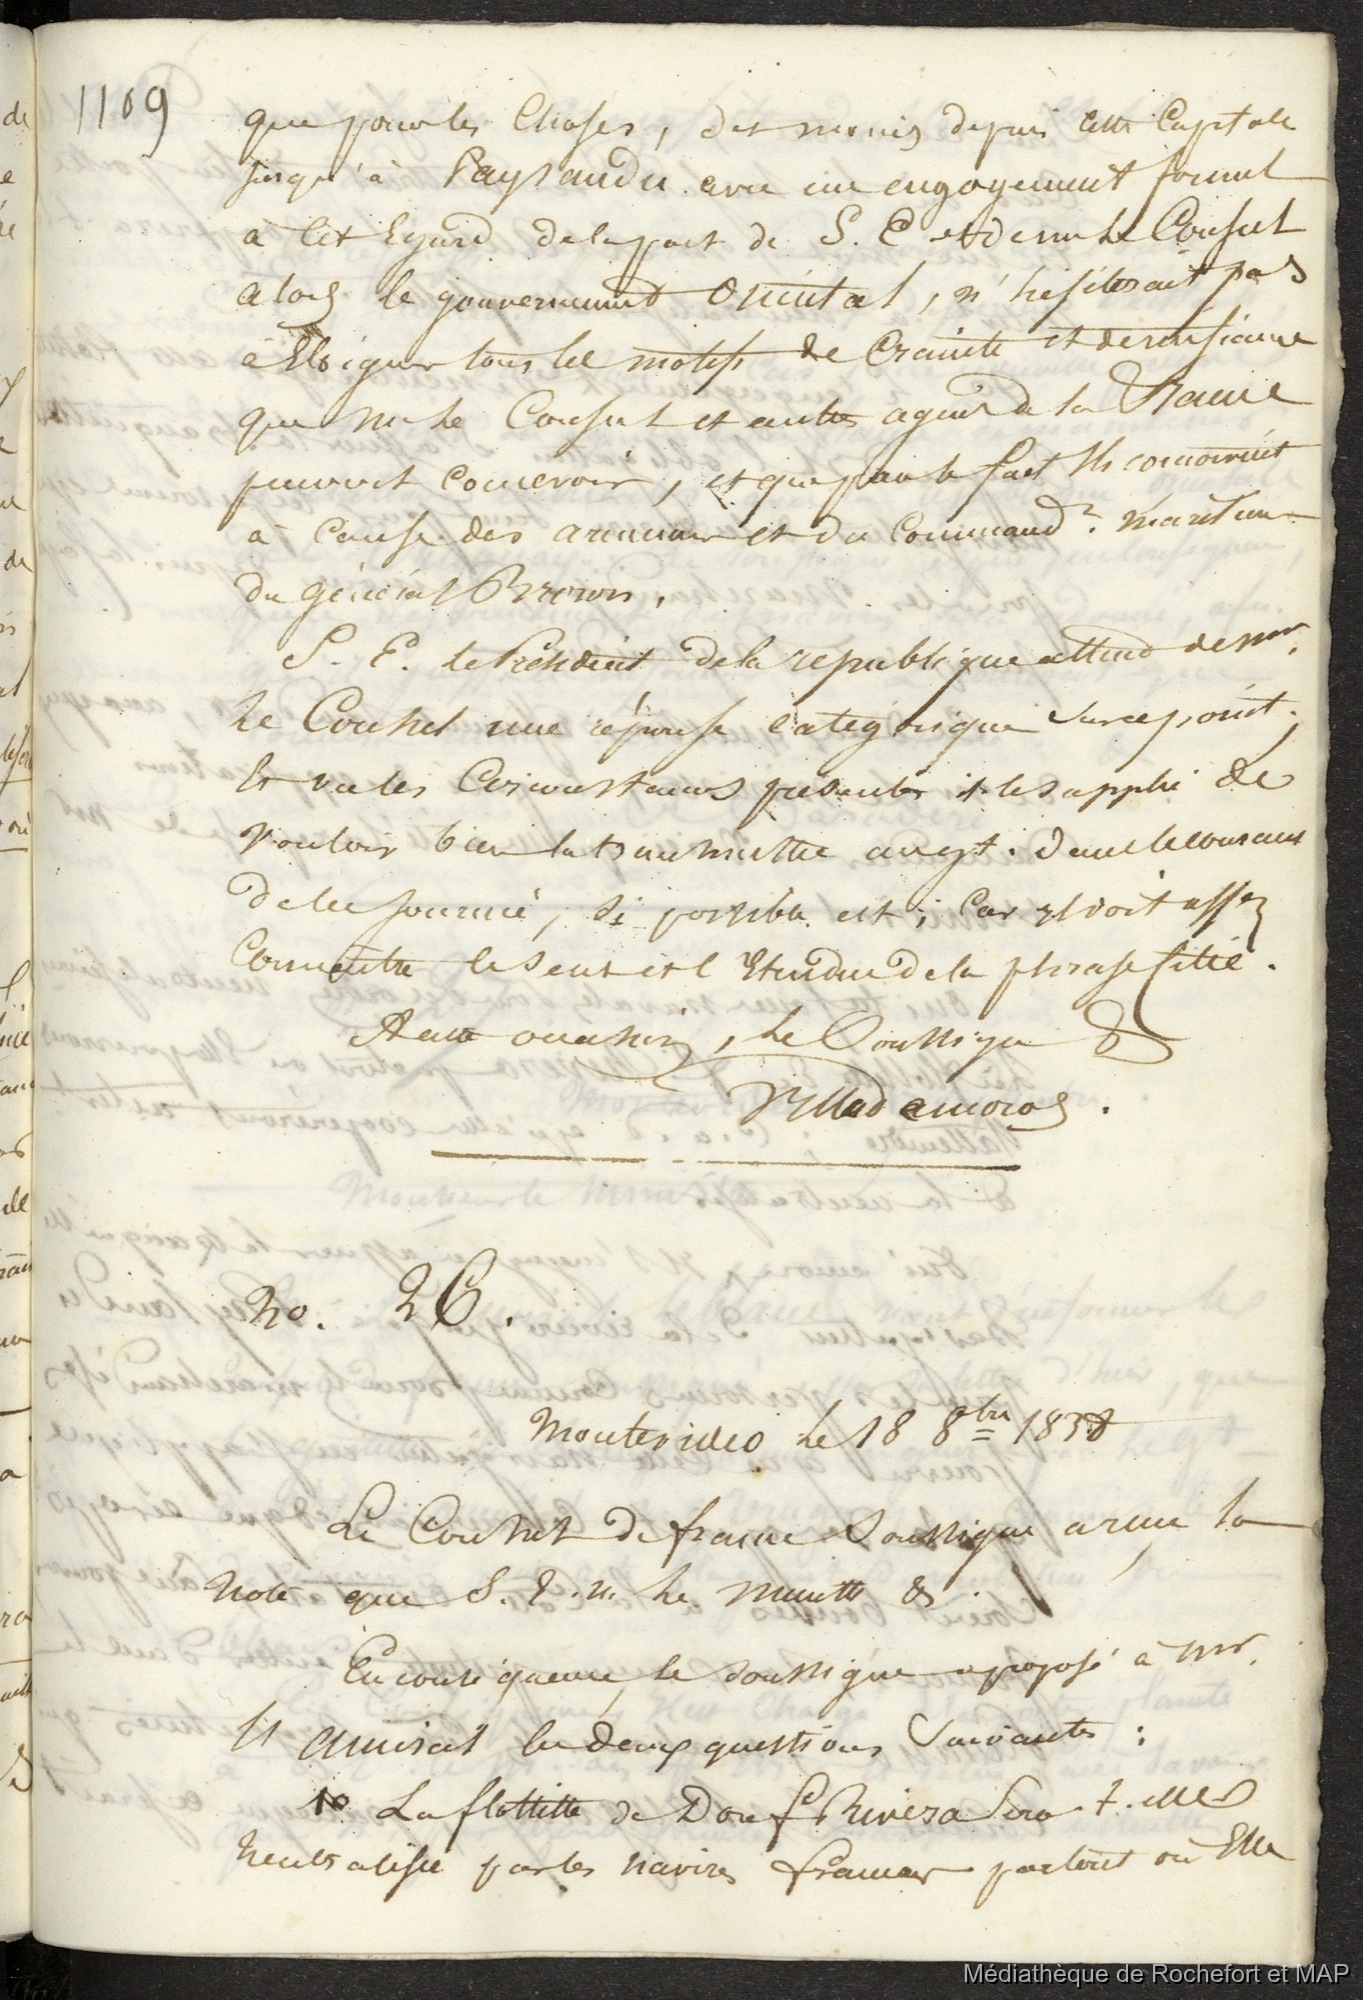 1109
que pour les Choses, des moins depuis cette Capitale
jusqu'à Paysandu avec un engagement formel
à Cet Egard de la part de S. E. et de mr Le Consul
alors le gouvernement Oriental, n'hesiterait pas
à Eloigner tous les motifs de Crainte et de méfiance
que mr Le Consul et autres agens de la France
peuvent Concevoir, et que par le fait Ils conçoivent
à Cause des armemens et du Commandt. maritime
du général Brown.
S. E. le Président de la republique attend de mr.
Le Consul une réponse categorique sur ce point;
Et vu les Circonstances présentes il le supplie de
vouloir bien la transmettre au gt. dans le courant
de la journée, si possible est; Car il doit assez
Connaitre le sens et l'Etendue de la phrase Citée.
A cette occasion, Le Soussigné &
Villademoros.
No. 26.
Montevideo le 18 8bre 1838
Le Consul de france Soussigné a reçu la
note que S. E. m. Le ministre &.
En conséquence, le soussigné a proposé à mr.
Ll amiral les deux questions Suivantes :
1o La flottille de Don fe Rivera Sera-t-elle
neutralisée par les navires français partout où Elle
Médiathèque de Rochefort et MAP